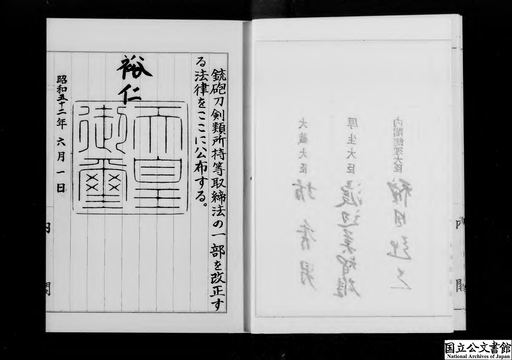 銃砲刀剣類所持等取締法の一部を改正す
る法律をここに公布する。
裕仁
天皇
御璽
昭和五十二年 六月 一日
内閣
内閣総理大臣 福田赳夫
厚生大臣 渡辺美智雄
大蔵大臣 坊秀男
内閣
国立公文書館
National Archives of Japan